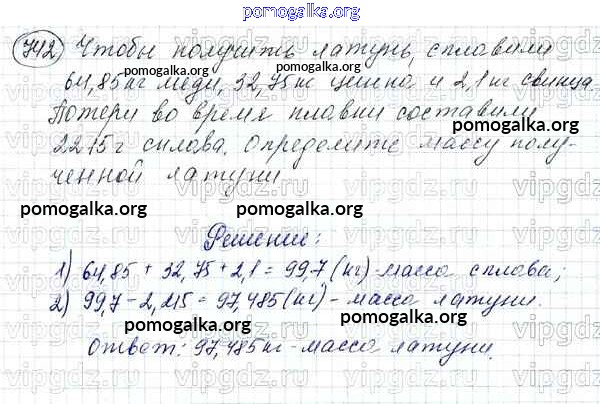 pomogalka.org
742 Чтобы получить латунь, сплавили
64,85 кг меди, 32,75 кг цинка и 2,1 кг свинца.
Потери во время плавки составили
2215 г сплава. Определите массу полу-
ченной латуни.
pomogalka.org pomogalka.org pomogalka.org
Решение:
1) 64,85 + 32,75 + 2,1 = 99,7 (кг) - масса сплава;
2) 99,7 - 2,215 = 97,485 (кг) - масса латуни.
Ответ: 97,485 кг - масса латуни.